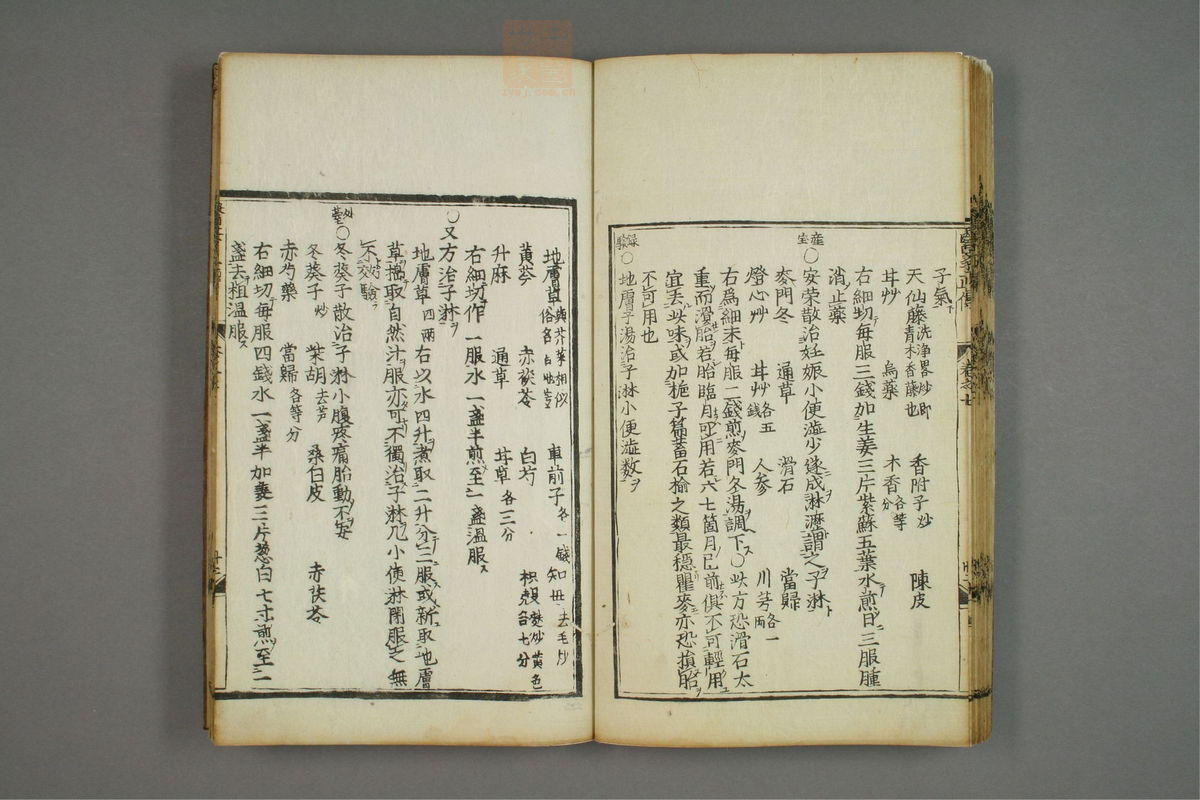 子氣
天仙藤洗浄畧炒即青木香藤也 香附子炒 陳皮
甘艸 烏藥 木香各等分
右細切每服三錢加生姜三片紫蘇五葉水煎日三服腫
消止藥
産宝
○安荣散治妊娠小便澁少遂成淋瀝謂之子淋
麥門冬 通草 滑石 當歸
燈心艸 甘艸各五錢 人参 川芎各一兩
右爲細末每服二錢煎麥門冬湯調下○此方恐滑石太
重而滑胎若胎臨月可用若六七箇月已前俱不可輕用
宜去此味或加梔子萹蓄石榆之類最穩瞿麥亦恐損胎
不可用也
録験
○地膚子湯治子淋小便澁数
地膚草 車前子各一錢 知母去毛炒
黄芩 赤茯苓 白芍 枳殼麸炒黄色各七分
升麻 通草 甘草各三分
右細切作一服水一盞半煎至一盞溫服
○又方治子淋
地膚草四兩右以水四升煮取二升分三服或新取地膚
草搗取自然汁服亦可不獨治子淋凡小便淋閉服之無
不效驗
○冬葵子散治子淋小腹疼痛胎動不安
冬葵子炒 柴胡去芦 桑白皮 赤茯苓
赤芍藥 當歸各等分
右細切每服四錢水一盞半加姜三片葱白七寸煎至一
盞去粗溫服